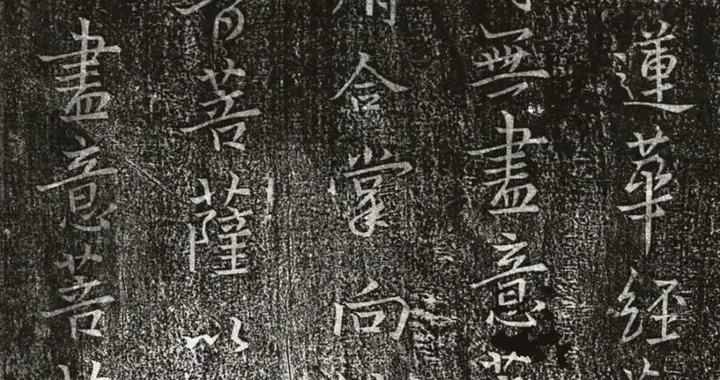 蓮華經
無盡意
合掌向
菩薩以
盡意菩